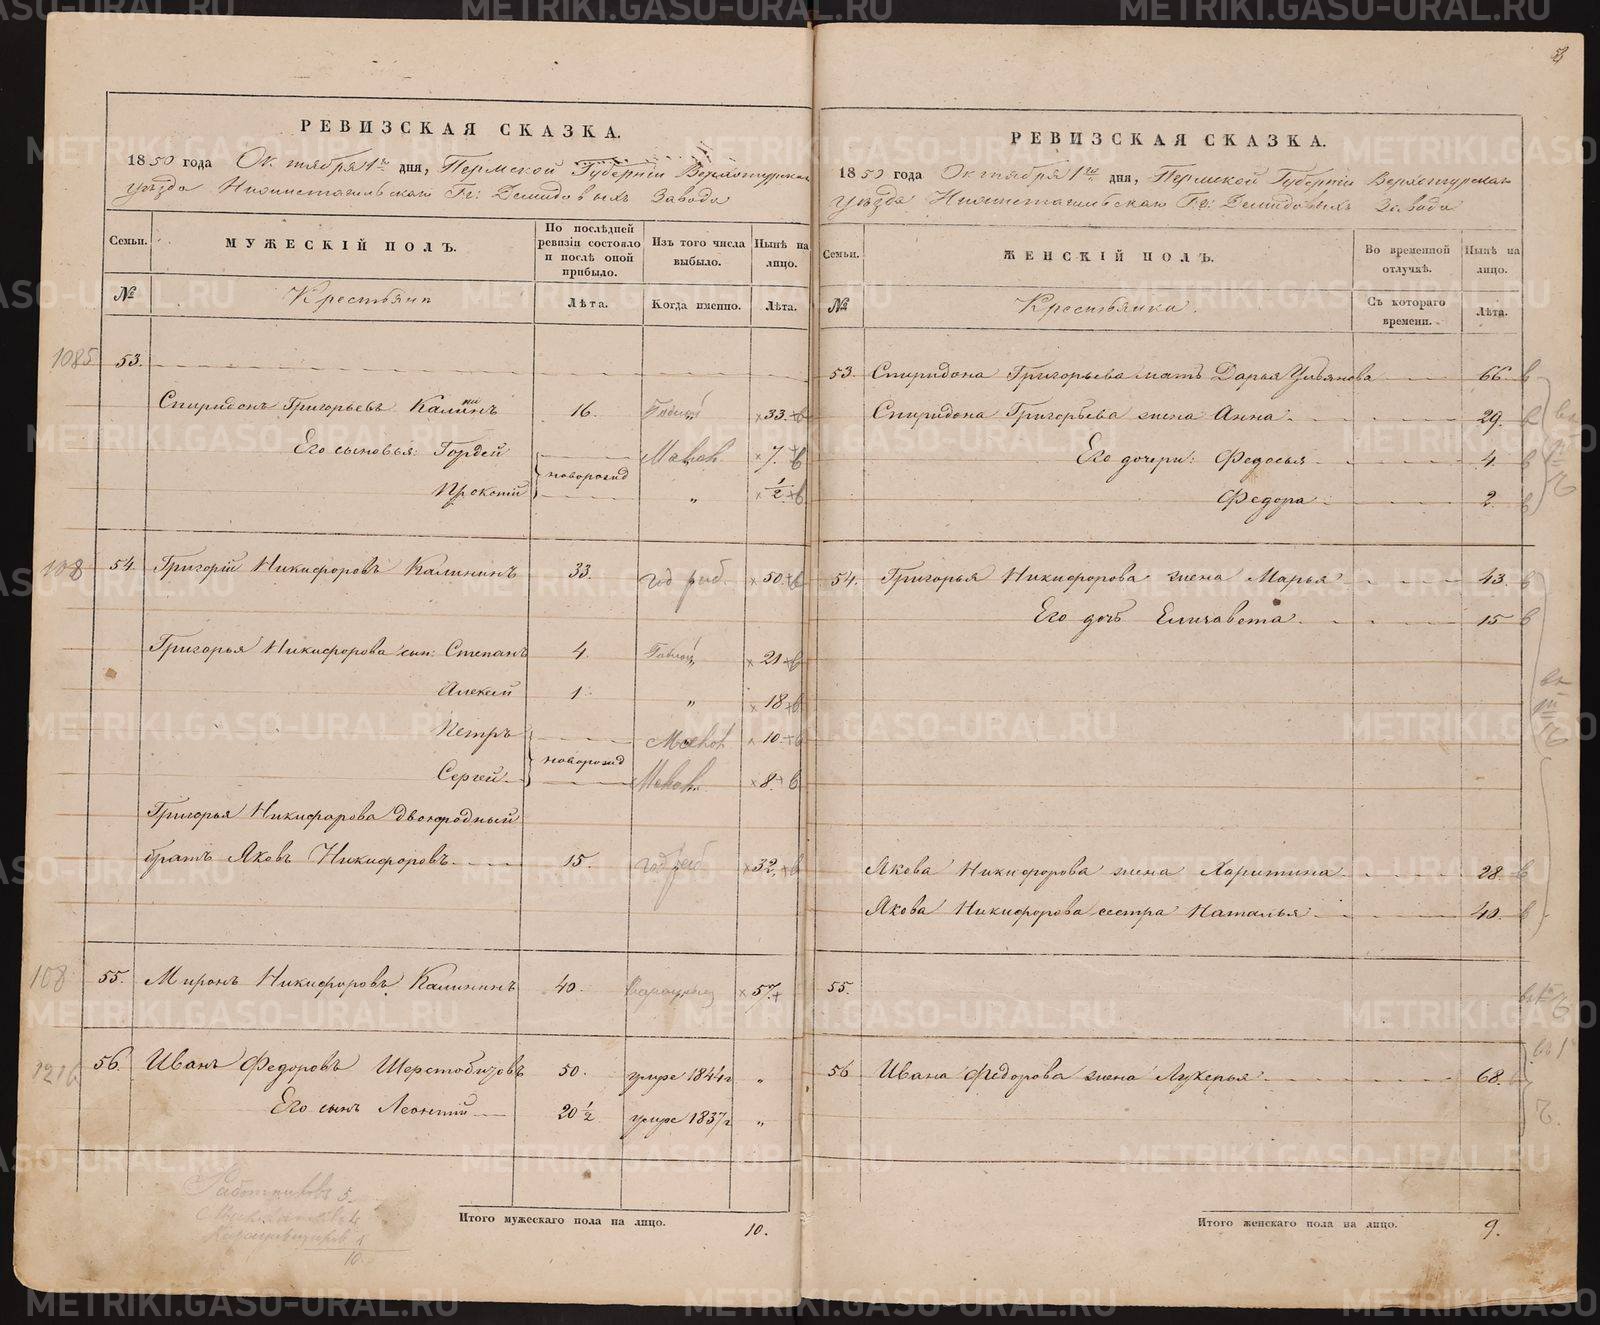 РЕВИЗСКАЯ СКАЗКА.
1850 года Октября 1го дня, Пермской Губерніи Верхотурскаго
уѣзда Нижнетагильскаго Гг: Демидовыхъ Завода
Семьи.
МУЖЕСКІЙ ПОЛЪ.
По послѣдней ревизіи состояло и послѣ оной прибыло.
Изъ того числа выбыло.
Нынѣ на лицо.
№
Крестьяни
Лѣта.
Когда именно.
Лѣта.
1085 53.
Спиридонъ Григорьевъ Калининъ 16. 33.
Его сыновья: Гордей 7.
новорожд
Прокопій " 1/2
108 54. Григорій Никифоровъ Калининъ 33. год раб. 50.
Григорья Никифорова сын: Степанъ 4. 21
Алексей 1. " 18
Петръ 10.
новорожд
Сергей 8.
Григорья Никифорова двоюродный
братъ Яковъ Никифоровъ 15. год раб 32.
108 55. Миронъ Никифоровъ Калининъ 40. 57.
1216 56. Иванъ Федоровъ Шерстобитовъ 50. умре 1844г "
Его сынъ Леонтій 20 1/2 умре 1837г "
Работниковъ 5
4
1
10
Итого мужескаго пола на лицо. 10.
РЕВИЗСКАЯ СКАЗКА.
1850 года Октября 1го дня, Пермской Губерніи Верхотурскаго
уѣзда Нижнетагильскаго Гг: Демидовыхъ Завода
Семьи.
ЖЕНСКІЙ ПОЛЪ.
Во временной отлучкѣ.
Нынѣ на лицо.
№
Крестьянка.
Съ котораго времени.
Лѣта.
53. Спиридона Григорьева мать Дарья Ульянова 66 в
Спиридона Григорьева жена Анна 29. в
Его дочери: Федосья 4. в
Федора 2. в
54. Григорья Никифорова жена Марья 43. в
Его дочь Елизавета 15 в
Якова Никифорова жена Харитина 28. в
Якова Никифорова сестра Наталья 40. в
55.
56 Ивана Федорова жена Лукерья 68.
Итого женскаго пола на лицо. 9.
METRIKI.GASO-URAL.RU